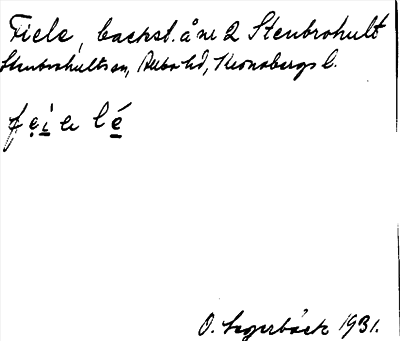 Fiele, backst. å nr 2 Stenbrohult
Stenbrohults sn, Allbo hd, Kronobergs l.
O. Lagerbäck 1931.